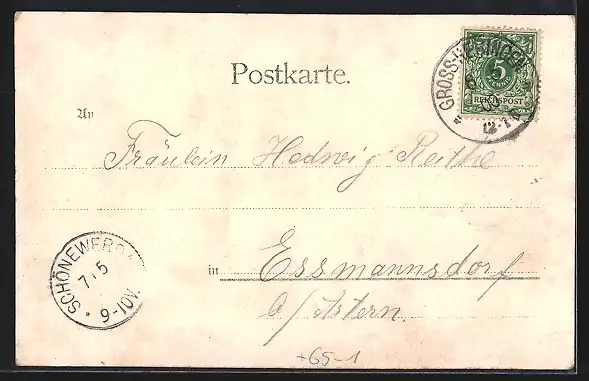 Postkarte.
GROSS-HERINGEN
12-1
5
REICHSPOST
An
Fräulein Hedwig Rathe
SCHÖNEWERDA
7/5
9-10V.
in Essmannsdorf
b/Artern.
+65-1